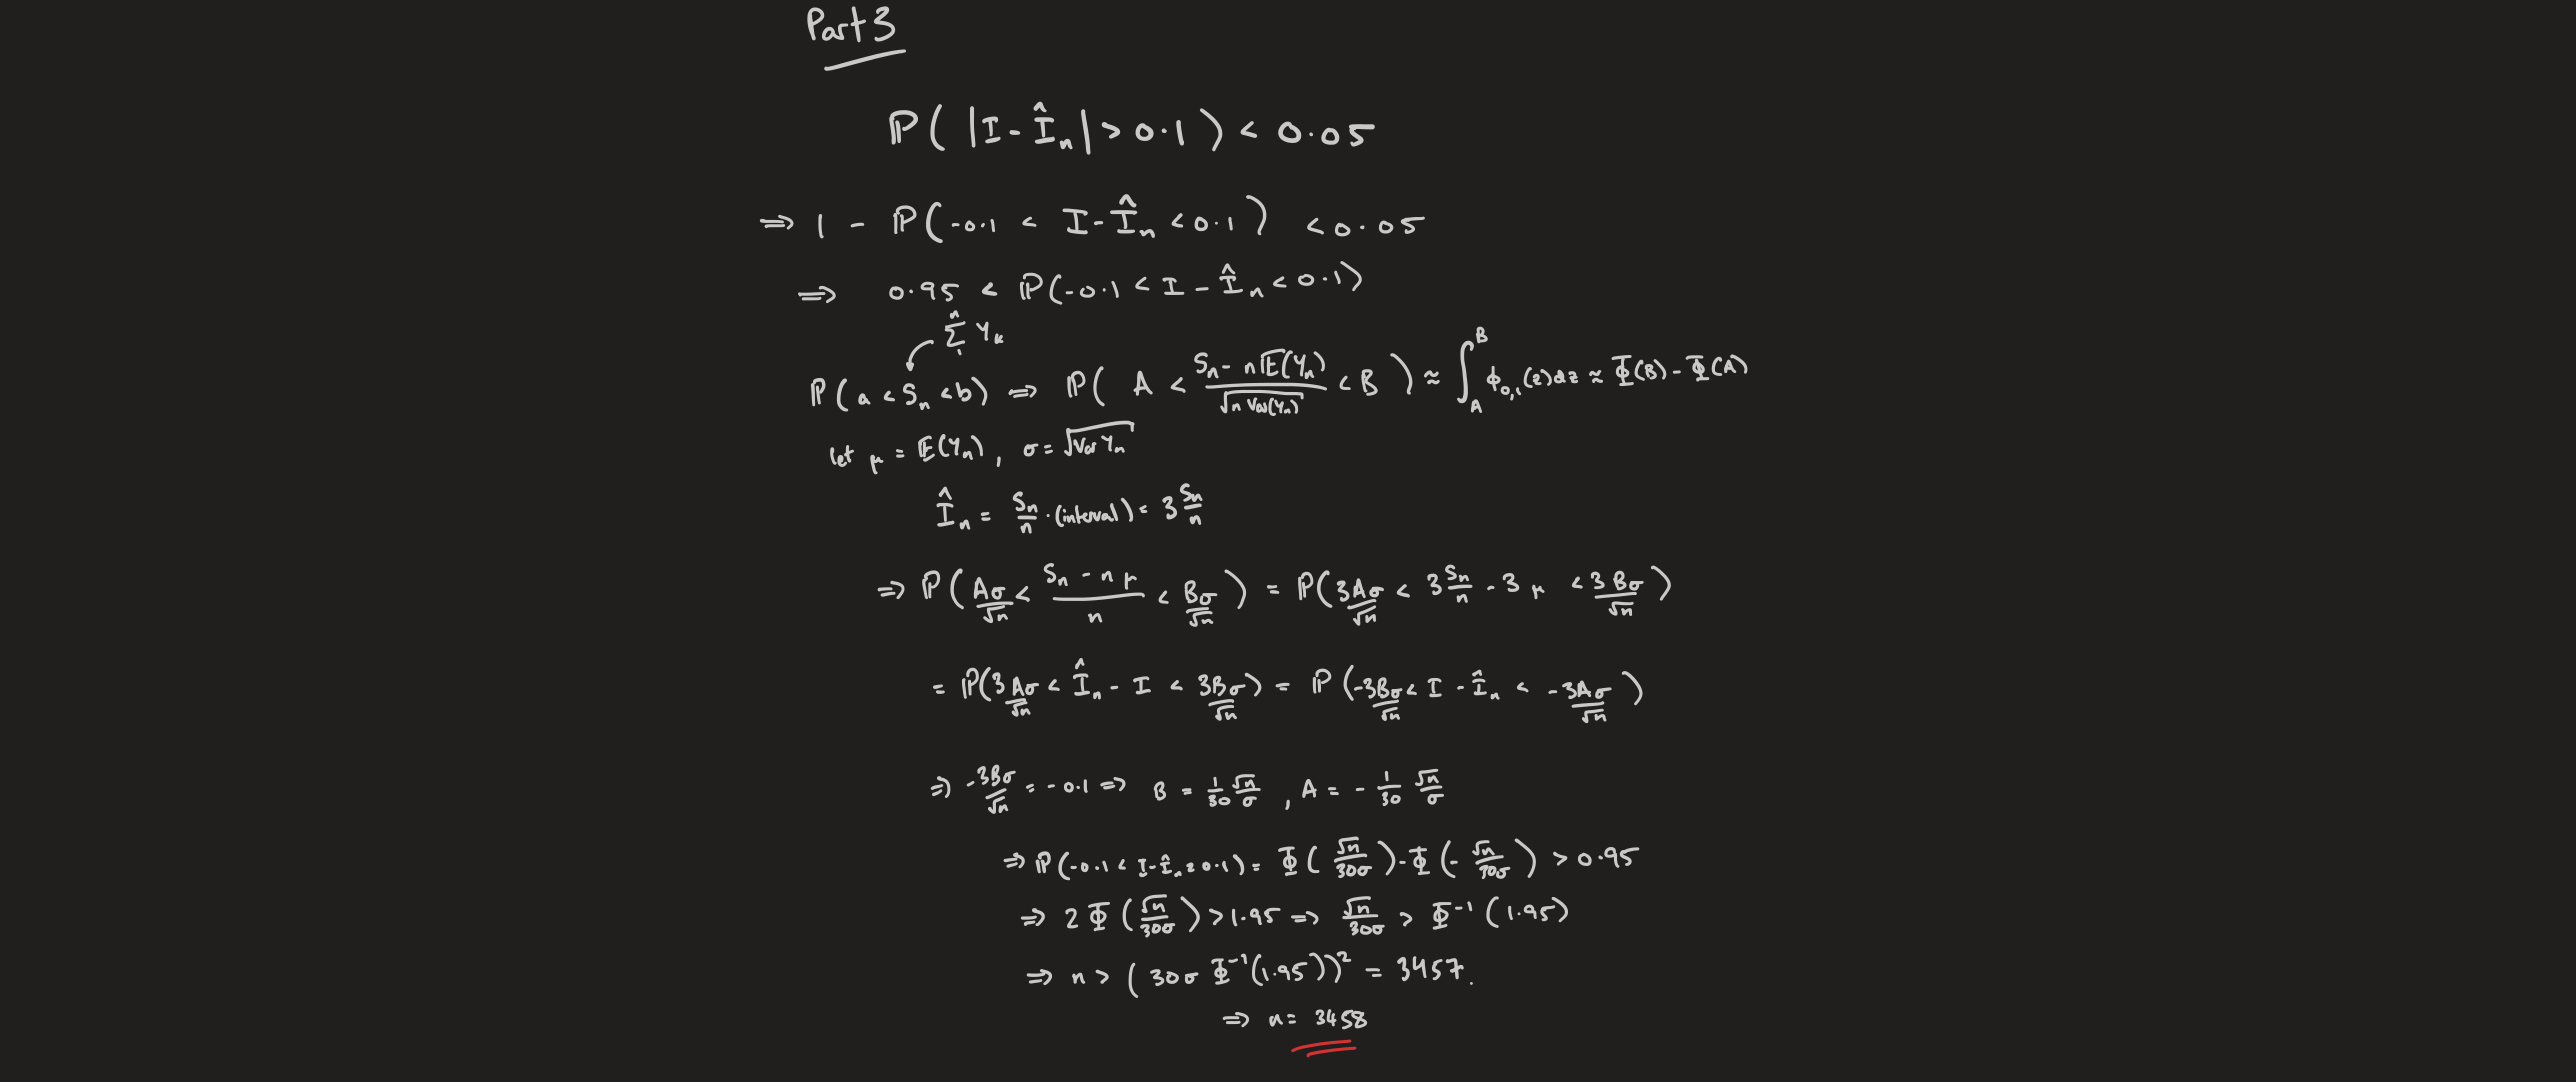 Part 3
ℙ( |I - Î_n| > 0.1 ) < 0.05
⇒ 1 - ℙ( -0.1 < I - Î_n < 0.1 ) < 0.05
⇒ 0.95 < ℙ( -0.1 < I - Î_n < 0.1 )
∑_1^n Y_k
ℙ( a < S_n < b ) ⇒ ℙ( A < (S_n - n𝔼(Y_n))/√(n Var(Y_n)) < B ) ≈ ∫_A^B φ_{0,1}(z)dz ≈ Φ(B) - Φ(A)
let μ = 𝔼(Y_n), σ = √(Var Y_n)
Î_n = S_n/n · (interval) = 3 S_n/n
⇒ ℙ( Aσ/√n < (S_n - nμ)/n < Bσ/√n ) = ℙ( 3Aσ/√n < 3 S_n/n - 3μ < 3Bσ/√n )
= ℙ( 3Aσ/√n < Î_n - I < 3Bσ/√n ) = ℙ( -3Bσ/√n < I - Î_n < -3Aσ/√n )
⇒ -3Bσ/√n = -0.1 ⇒ B = 1/30 √n/σ , A = - 1/30 √n/σ
⇒ ℙ( -0.1 < I - Î_n < 0.1 ) = Φ( √n/30σ ) - Φ( - √n/30σ ) > 0.95
⇒ 2Φ( √n/30σ ) > 1.95 ⇒ √n/30σ > Φ⁻¹(1.95)
⇒ n > ( 30σ Φ⁻¹(1.95) )² = 3457.
⇒ n = 3458